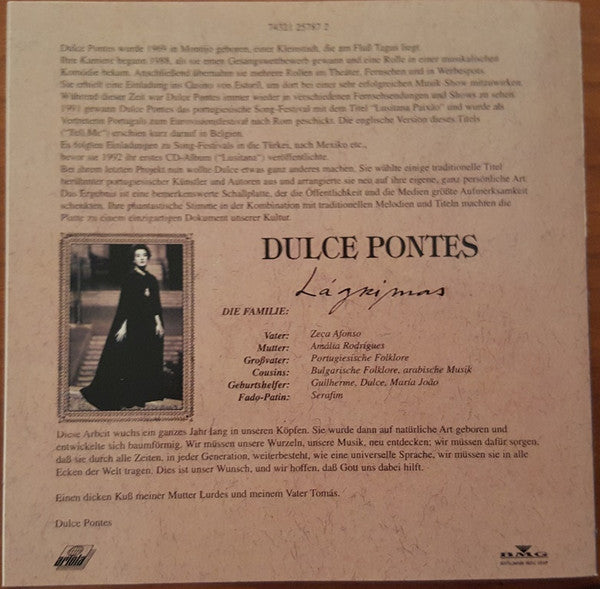 74321 25767 2
Dulce Pontes wurde 1969 in Montijo geboren, einer Kleinstadt, die am Fluß Tagus liegt.
Ihre Karriere begann 1988, als sie einen Gesangswettbewerb gewann und eine Rolle in einer musikalischen
Komödie bekam. Anschließend übernahm sie mehrere Rollen im Theater, Fernsehen und in Werbespots.
Sie erhielt eine Einladung ins Casino von Estoril, um dort bei einer sehr erfolgreichen Musik-Show mitzuwirken.
Während dieser Zeit war Dulce Pontes immer wieder in verschiedenen Fernsehsendungen und Shows zu sehen.
1991 gewann Dulce Pontes das portugiesische Song-Festival mit dem Titel "Lusitana Paixão" und wurde als
Vertreterin Portugals zum Eurovisionsfestival nach Rom geschickt. Die englische Version dieses Titels
("Tell Me") erschien kurz darauf in Belgien.
Es folgten Einladungen zu Song-Festivals in die Türkei, nach Mexiko etc.,
bevor sie 1992 ihr erstes CD-Album ("Lusitana") veröffentlichte.
Bei ihrem letzten Projekt nun wollte Dulce etwas ganz anderes machen. Sie wählte einige traditionelle Titel
berühmter portugiesischer Künstler und Autoren aus und arrangierte sie neu auf ihre eigene, ganz persönliche Art.
Das Ergebnis ist eine bemerkenswerte Schallplatte, der die Öffentlichkeit und die Medien größte Aufmerksamkeit
schenkten. Ihre phantastische Stimme in der Kombination mit traditionellen Melodien und Titeln machten die
Platte zu einem einzigartigen Dokument unserer Kultur.
DULCE PONTES
Lágrimas
DIE FAMILIE:
Vater: Zeca Afonso
Mutter: Amália Rodrigues
Großvater: Portugiesische Folklore
Cousins: Bulgarische Folklore, arabische Musik
Geburtshelfer: Guilherme, Dulce, Maria João
Fado-Patin: Serafim
Diese Arbeit wuchs ein ganzes Jahr lang in unseren Köpfen. Sie wurde dann auf natürliche Art geboren und
entwickelte sich baumförmig. Wir müssen unsere Wurzeln, unsere Musik, neu entdecken; wir müssen dafür sorgen,
daß sie durch alle Zeiten, in jeder Generation, weiterbesteht, wie eine universelle Sprache, wir müssen sie in alle
Ecken der Welt tragen. Dies ist unser Wunsch, und wir hoffen, daß Gott uns dabei hilft.
Einen dicken Kuß meiner Mutter Lurdes und meinem Vater Tomás.
Dulce Pontes
ariola
BMG